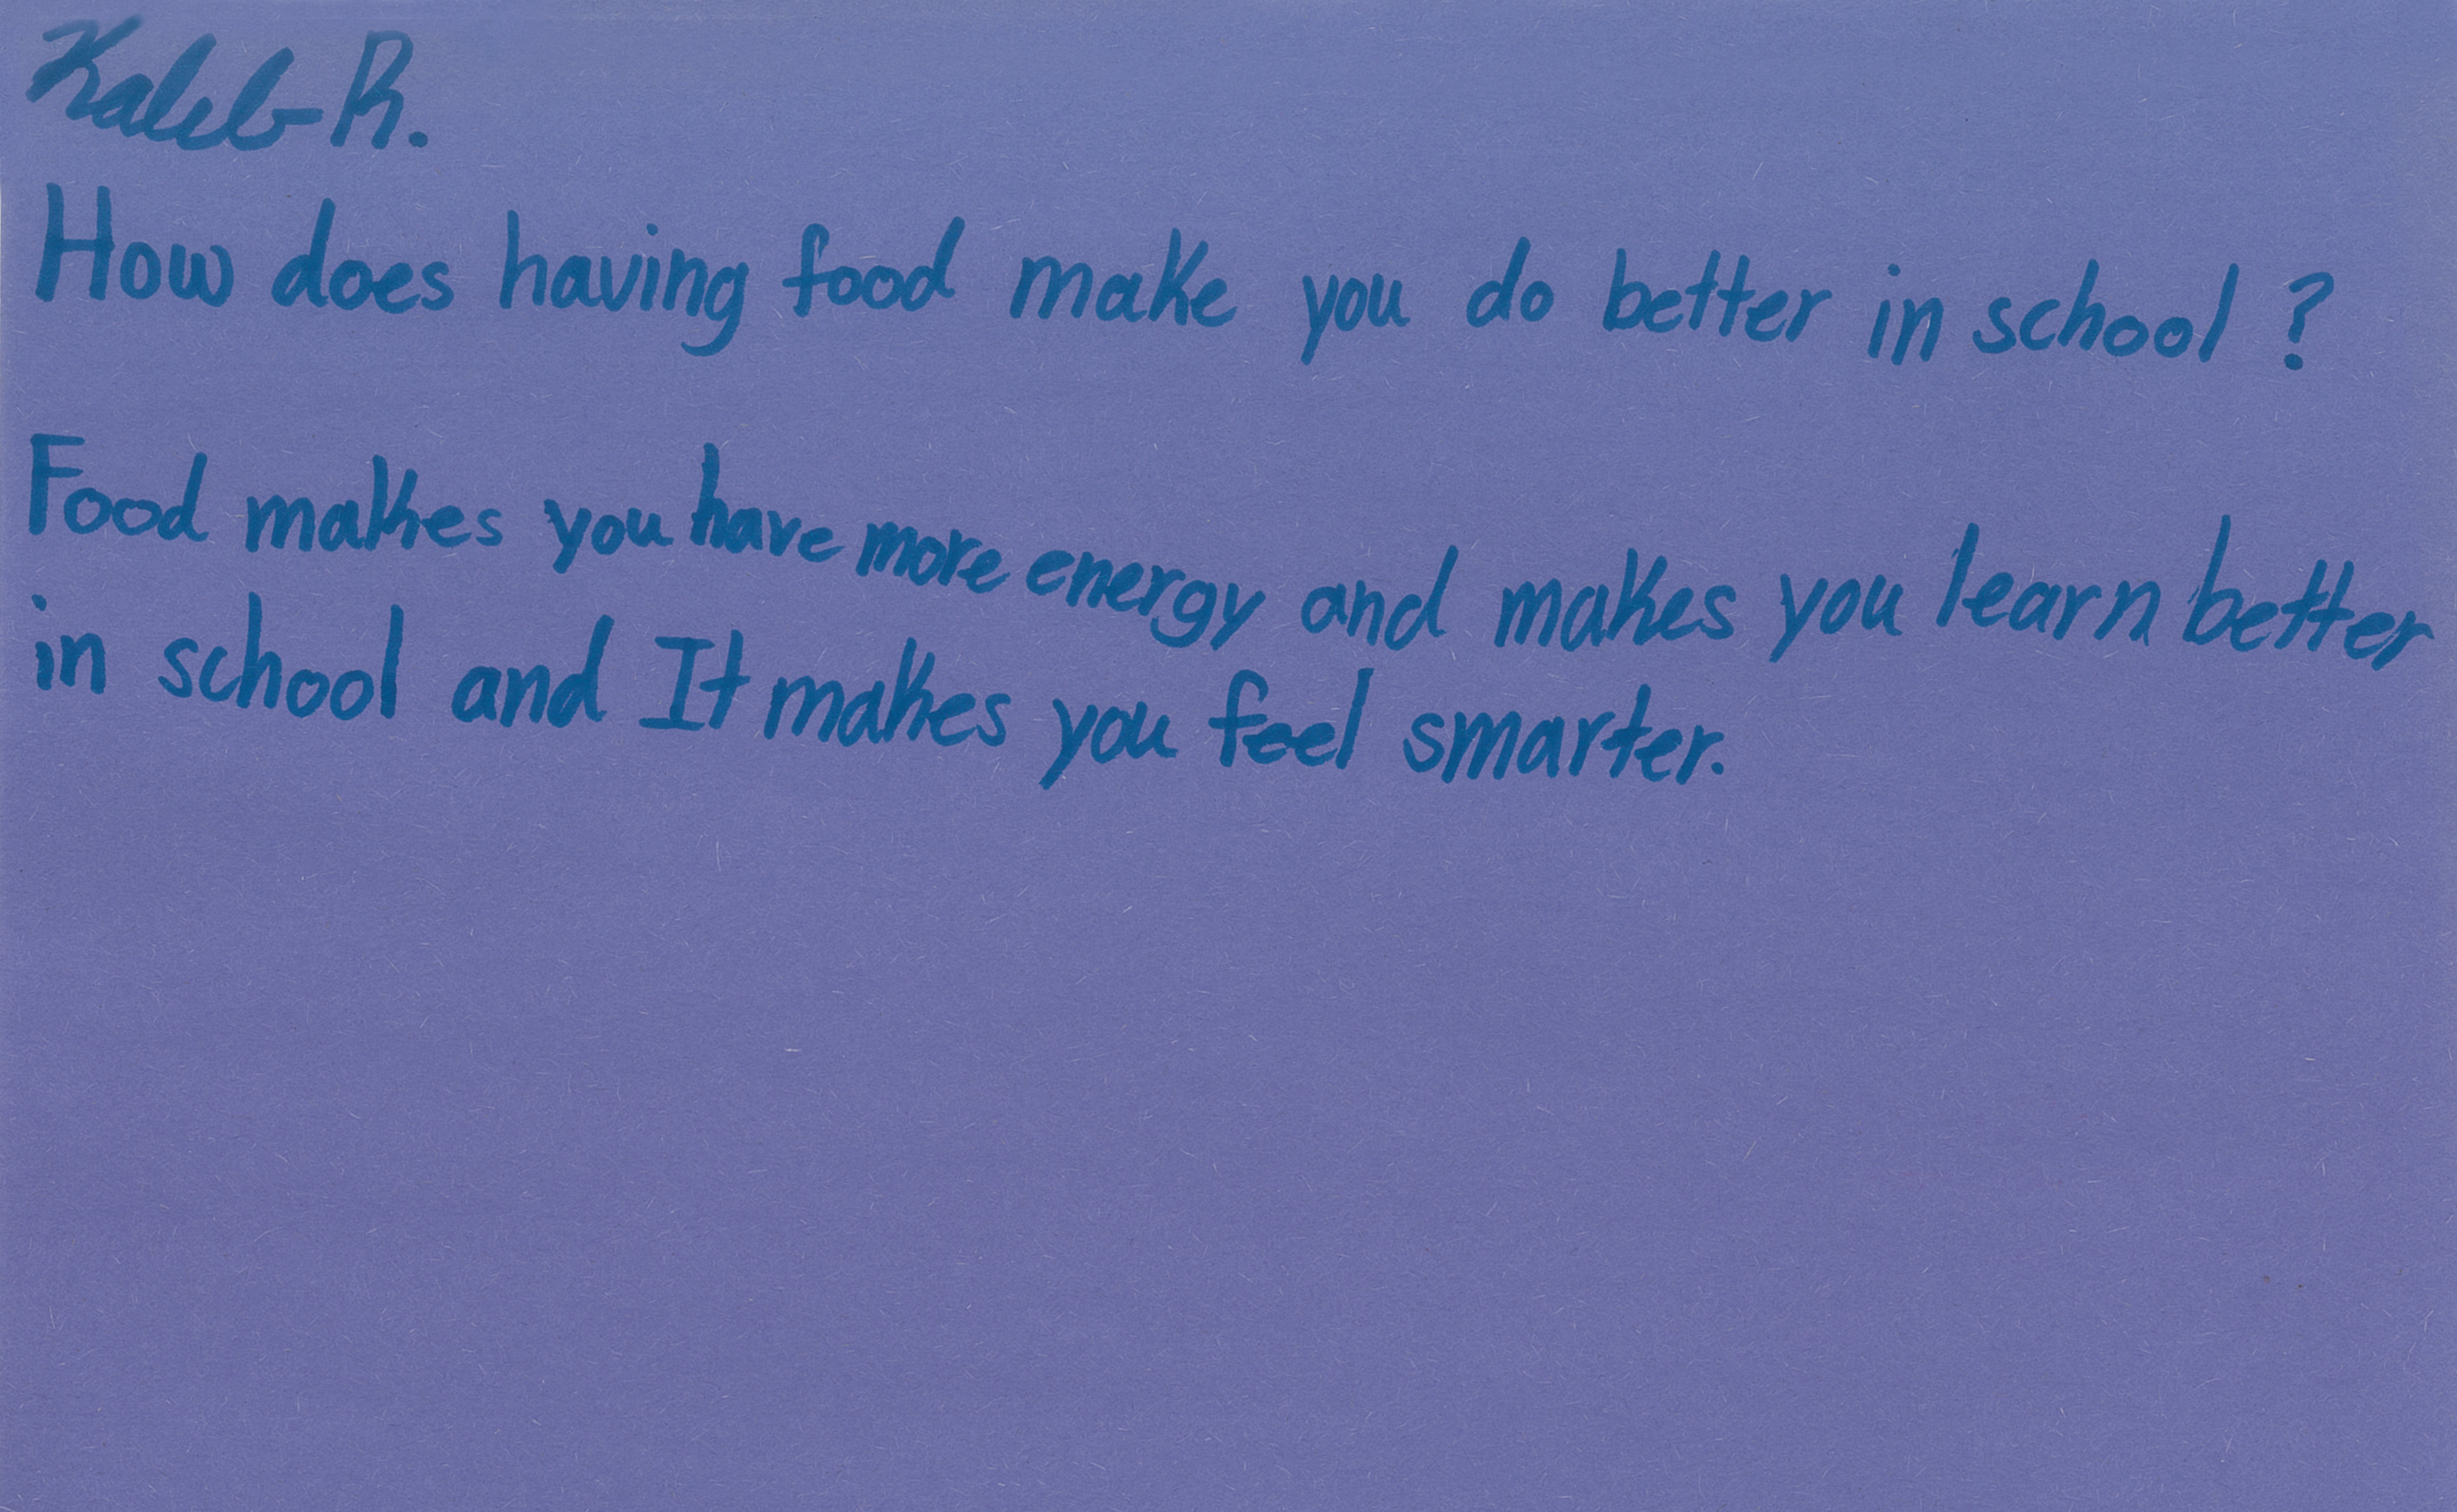 Kaleb R.
How does having food make you do better in school ?
Food makes you have more energy and makes you learn better
in school and It makes you feel smarter.